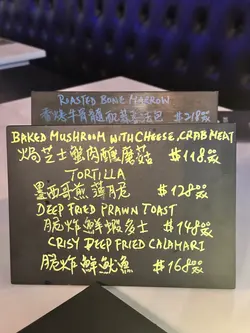 ROASTED BONE MARROW
香烤牛骨髓配蒜蓉法包 $218.00
BAKED MUSHROOM WITH CHEESE, CRABMEAT
焗芝士蟹肉釀蘑菇 $118.00
TORTILLA
墨西哥煎薄餅 $128.00
DEEP FRIED PRAWN TOAST
脆炸鮮蝦多士 $148.00
CRISY DEEP FRIED CALAMARI
脆炸鮮魷魚 $168.00